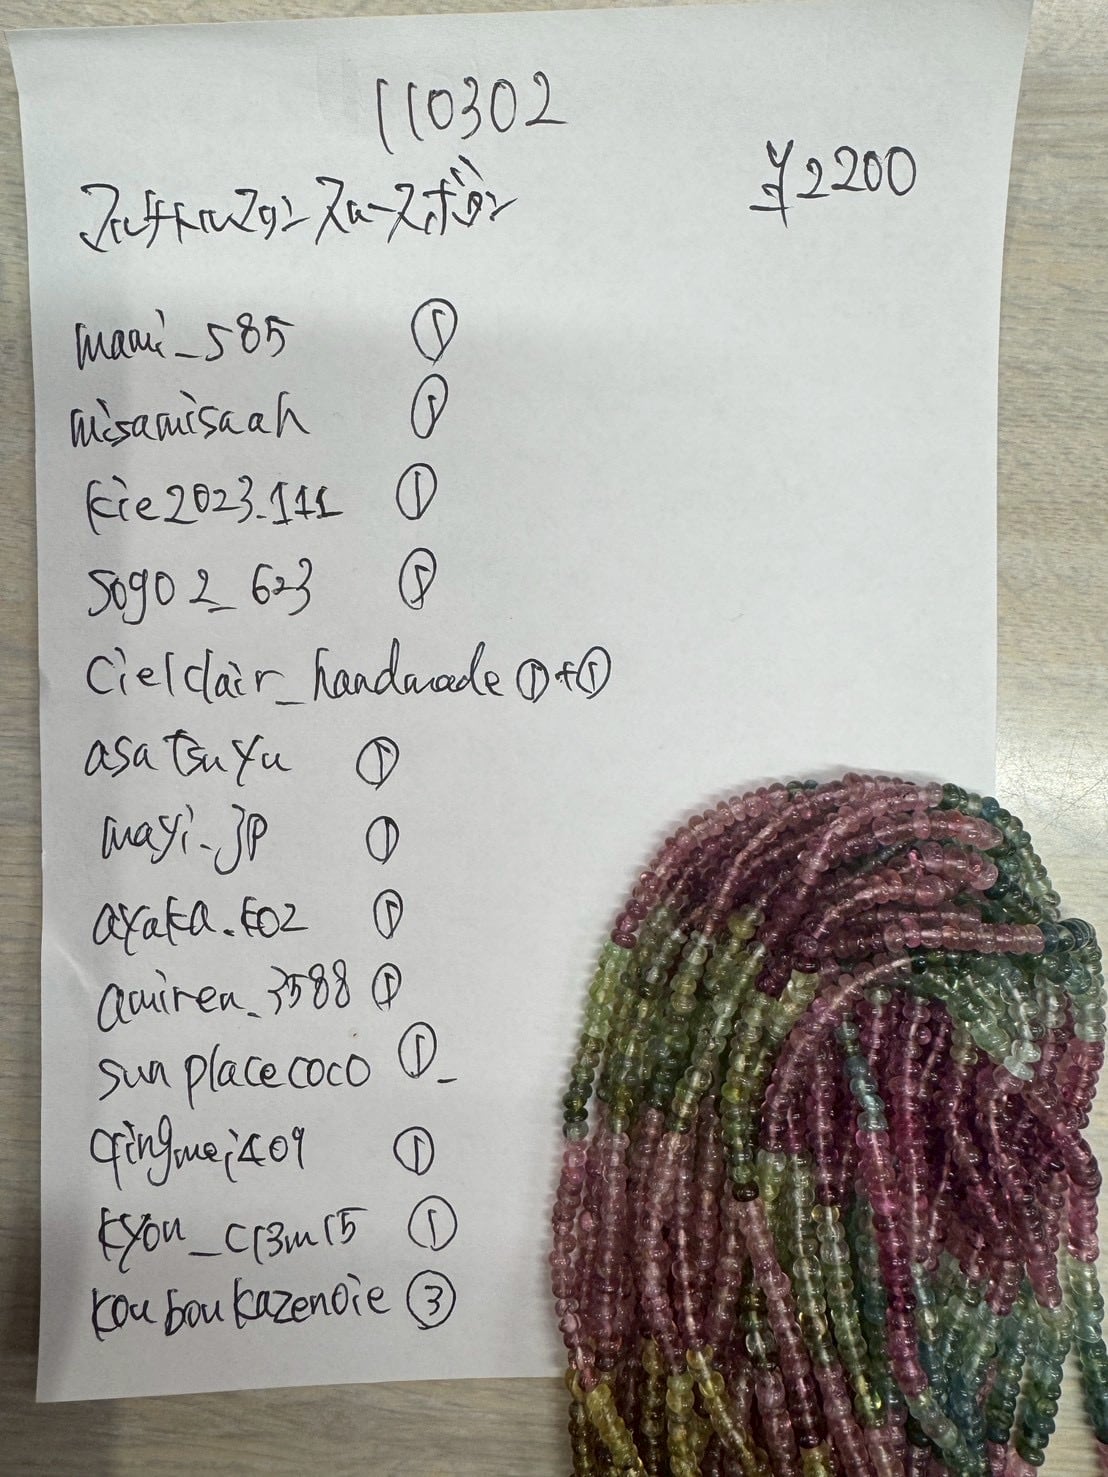 110302
¥2200
マルチトルマリン スムースボタン
mami_585 ①
misamisaah ①
kie2023.111 ①
sogo2_623 ①
cielclair_handmade ①+①
asatsuyu ①
mayi_jp ①
ayaka.koz ①
amiren_3588 ①
sunplacecoco ①
qingmei409 ①
kyou_cr3m15 ①
kouboukazenoie ③